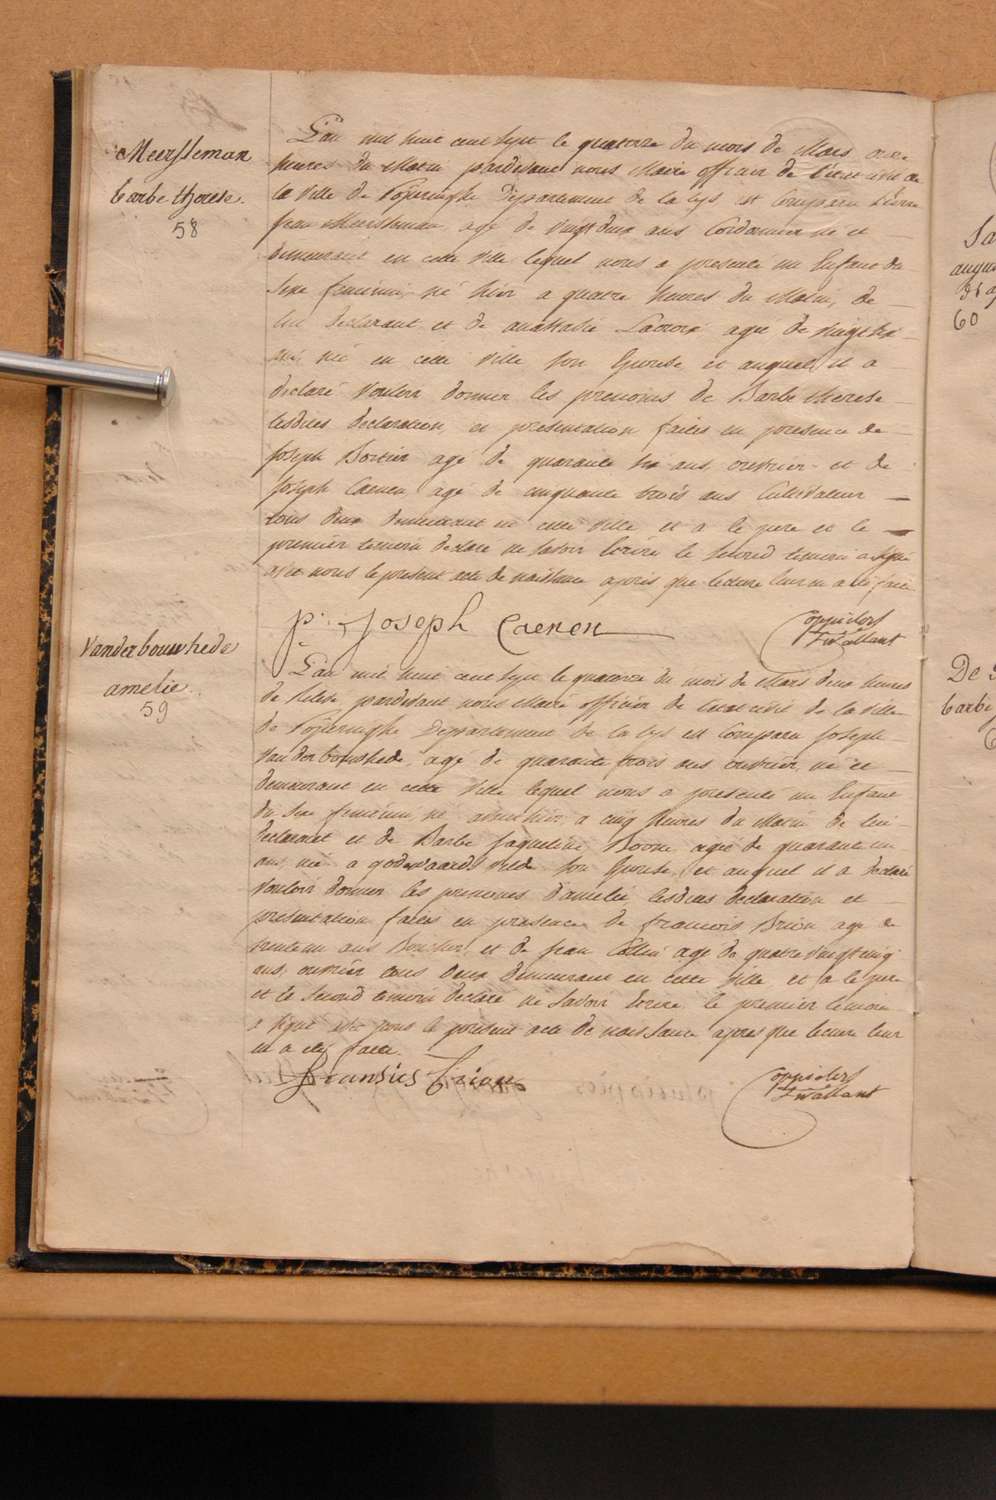 Meersseman
barbe therese.
58
L'an mil huit cent sept le quatorze du mois de Mars onze
heures du Matin pardevant nous Maire officier de l'etat civil de
la Ville de Poperinghe Departement de la Lys est Comparu Pierre
jean Meersseman agé de vingt deux ans Cordonnier né et
demeurant en cette ville lequel nous a presenté un Enfant du
Sexe feminin, né hier a quatre heures du Matin, de
lui declarant et de anathalie Lacroix agee de vingt six
ans, née en cette Ville son Epouse et auquel il a
declaré Vouloir donner les prenoms de Barbe therese
lesdites declaration, et presentation faites en presence de
joseph Bortier agé de quarante six ans, ouvrier et de
joseph Caenen agé de cinquante trois ans Cultivateur
tous deux demeurant en cette Ville et a le pere et le
premier temoin declaré ne Savoir Ecrire le Second temoin a Signé
avec nous le present acte de naissance après que lecture leur en a été faite
p: Joseph Caenen
Van der bouwhede
amelie.
59
L'an mil huit cent sept le quatorze du mois de Mars deux heures
de Relevée pardevant nous Maire officier de l'etat civil de la Ville
de Poperinghe Departement de la Lys est Comparu joseph
Van der bouwhede, agé de quarante trois ans ouvrier, né et
demeurant en cette Ville lequel nous a presenté un Enfant
du Sexe feminin, né avant hier a cinq heures du Matin de lui
declarant et de Barbe jaqueline Boone, agée de quarante un
ans née a godewaardsvelde son Epouse, et auquel il a declaré
Vouloir donner les prenoms d'amelie lesdites declaration et
presentation faites en presence de francois Brion agé de
trente un ans et de jean Collin agé de quatre vingt cinq
ans, ouvrier tous deux demeurant en cette Ville et a le pere
et le Second temoin declaré ne Savoir Ecrire, le premier temoin
a signé avec nous le present acte de naissance après que lecture leur
en a été faite.
De
barbe
60